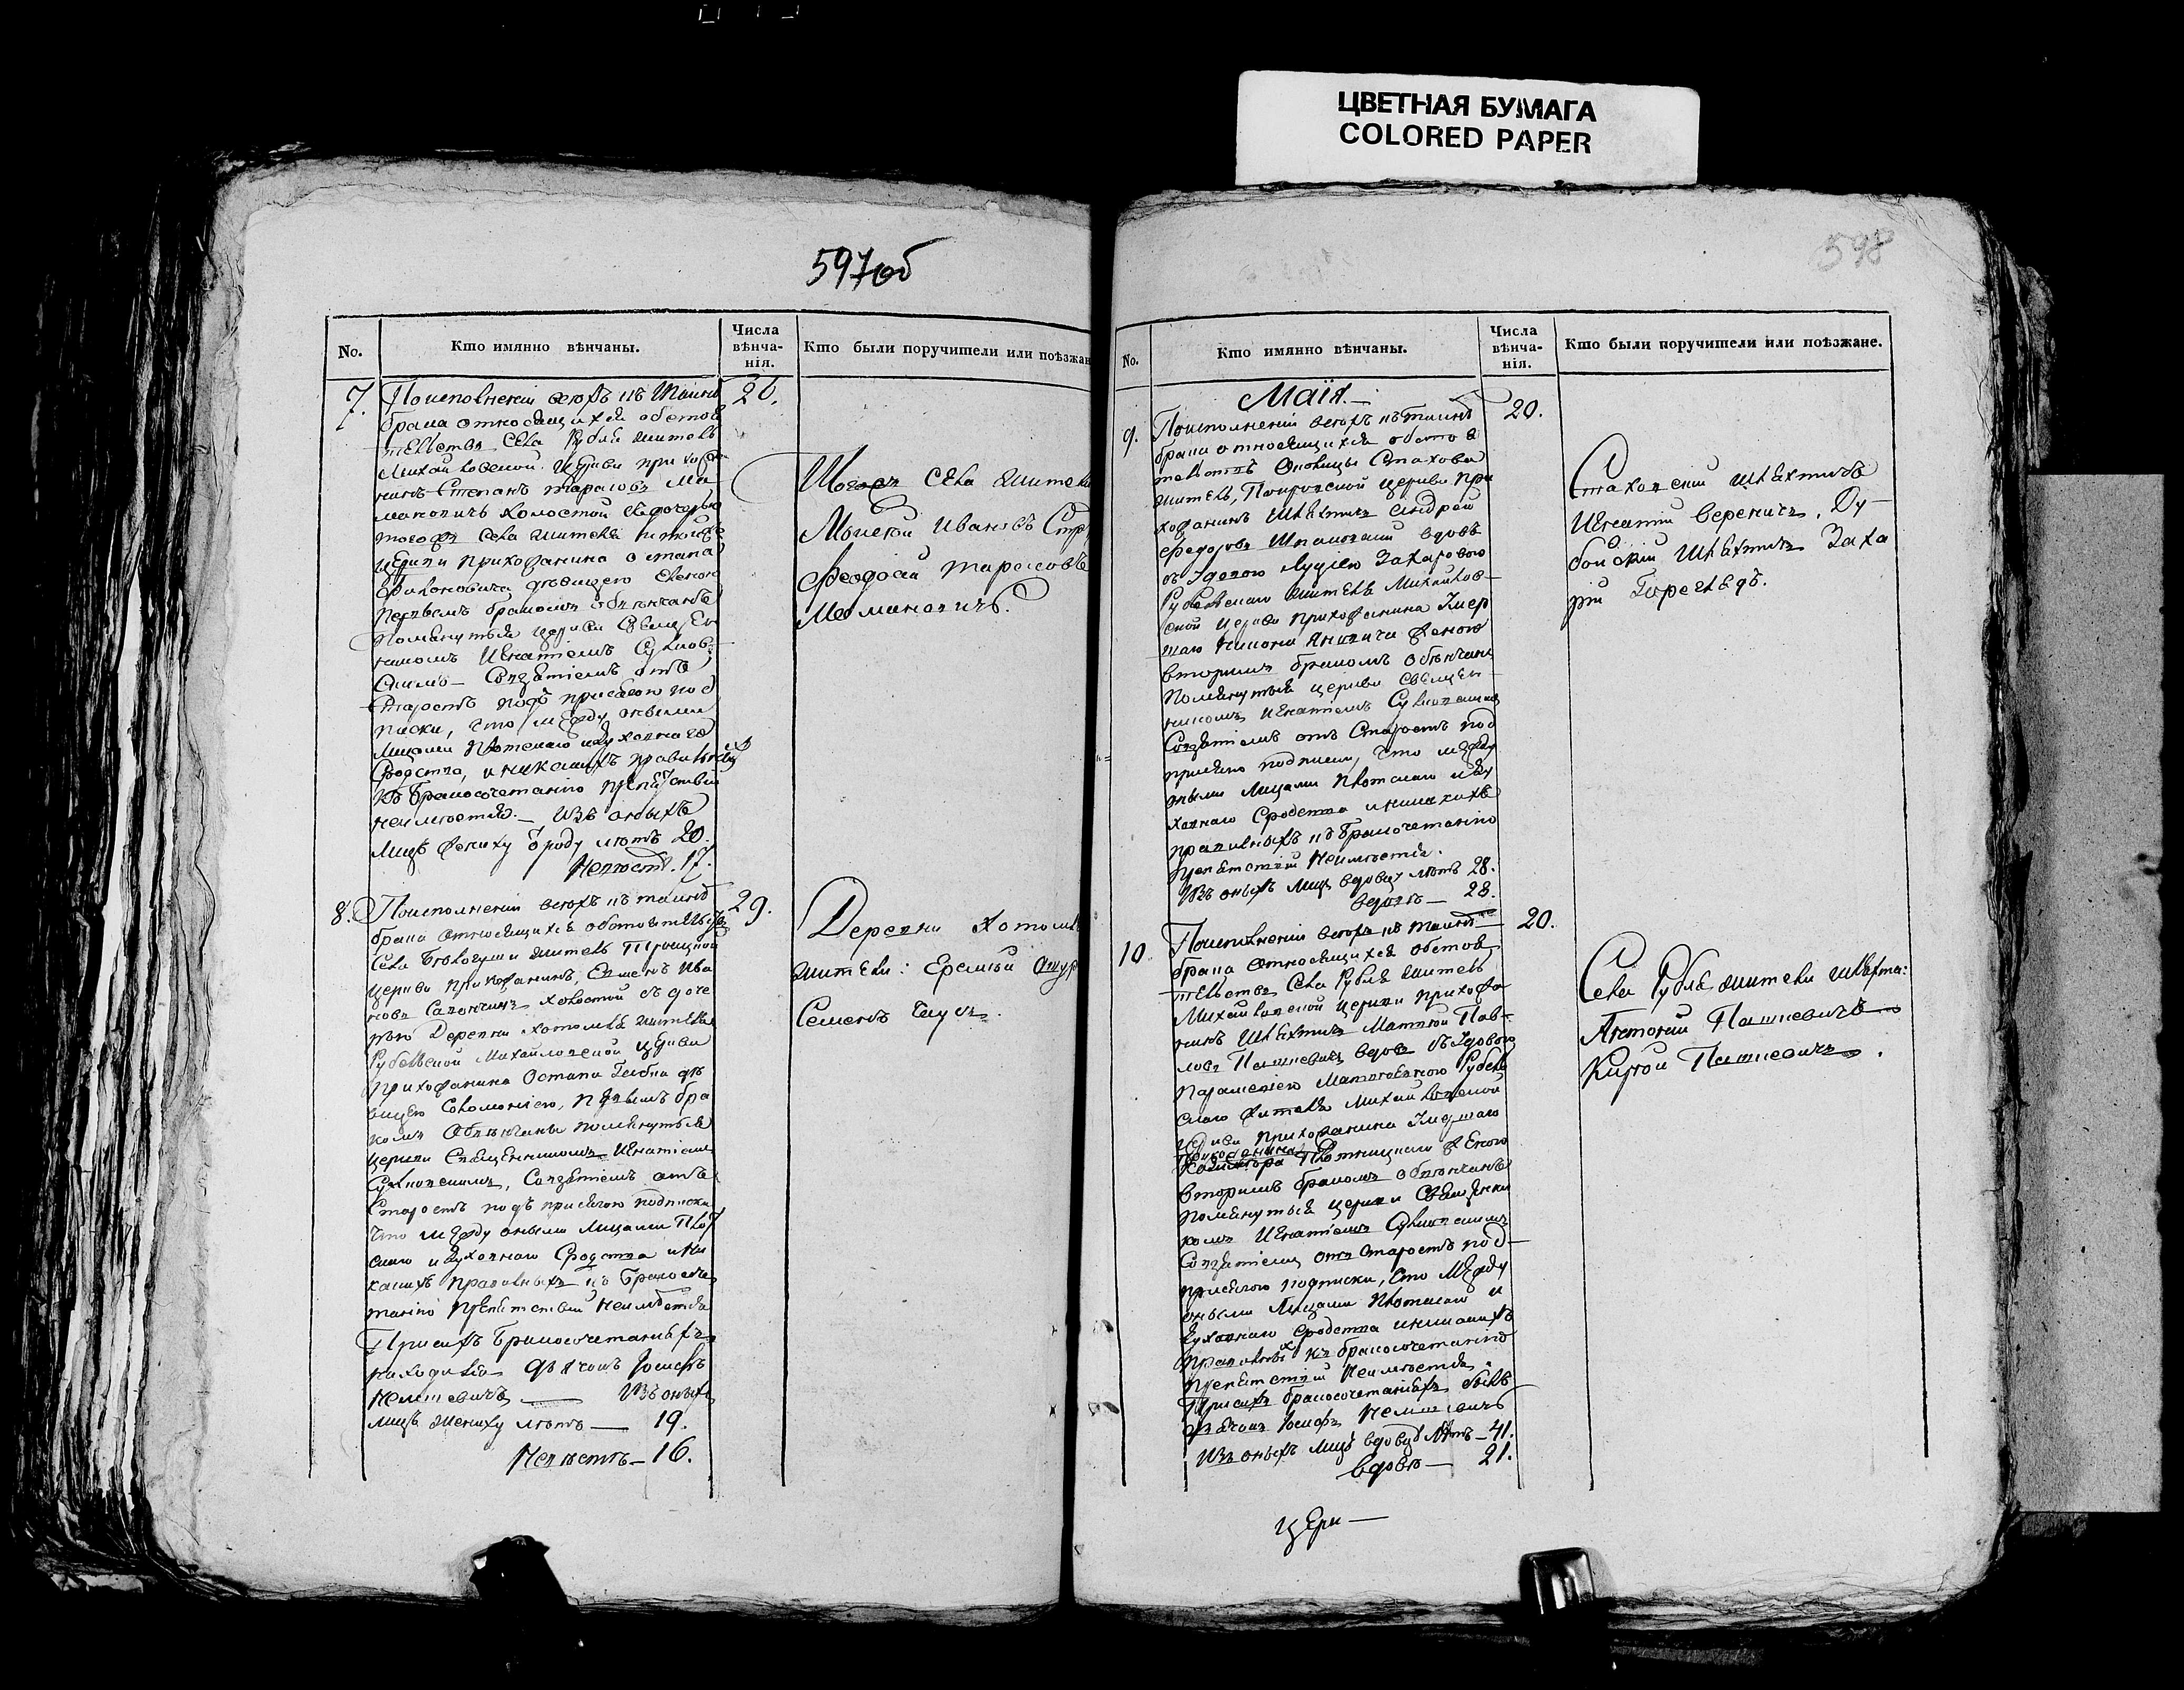 ЦВЕТНАЯ БУМАГА
COLORED PAPER
597об
No.
Кто имянно вѣнчаны.
Числа вѣнча-нія.
Кто были поручители или поѣзжан
7.
По исполненіи всѣхъ къ таинс
брака относящихся обстоя
тельствъ Села Рубля житель
Михайловской Церкви прихожа
нинъ Степанъ Тарасовъ Ма
мановичъ холостой съ дочерью
того жъ Села жителя тойже
церкви прихожанина Остапа
дѣвицею Еленою
первымъ бракомъ обвѣнчанъ
помянутыя церкви Священ
никомъ Игнатіемъ Сулков
скимъ Сознатіемъ отъ
Старостъ подъ присягою под
писки, что между оными
лицами плотскаго и духовнаго
Сродства, и никакихъ правильныхъ
къ бракосочетанію препятствій
неимѣется. — Изъ оныхъ
лицъ жениху броду лѣтъ 20.
Невѣстѣ. 17.
20.
Тогожъ Села жители
Моисей Ивановъ
Феодосій Тарасовъ
Мамановичъ.
8.
По исполненіи всѣхъ къ таинс
брака относящихся обстоятельствъ
Села житель Троицкой
церкви прихожанинъ, Ива
новъ холостой съ доче
рью Деревни Хотомля жителя
Рубельской Михайловской церкви
прихожанина Остапа дѣ
вицею Соломоніею, первымъ бра
комъ Обвѣнчаны помянутыя
церкви Священникомъ Игнатіемъ
Сулковскимъ, Сознатіемъ отъ
Старостъ подъ присягою подписки
что между оными лицами плот
скаго и духовнаго Сродства и ни
какихъ правильныхъ къ Бракосоче
танію препятствій неимѣется
При сихъ Бракосочетаніяхъ
находился дьячокъ Іосифъ
Немкевичъ — Изъ оныхъ
лицъ жениху лѣтъ — 19.
Невѣстѣ — 16.
29.
Деревни Хотомля
жители: Еремѣй
Семенъ
598
No.
Кто имянно вѣнчаны.
Числа вѣнча-нія.
Кто были поручители или поѣзжане.
Маія. —
9.
По исполненіи всѣхъ къ таинс
брака относящихся обстоя
тельствъ Околицы Стахова
житель, Покровской церкви при
хожанинъ Шляхтичъ Андрей
Федоровъ вдовъ
съ вдовою Лукіею Захаровою
Рубельскаго жителя Михайлов—
ской церкви прихожанина Умер
шаго Никона женою
вторымъ бракомъ обвѣнчанъ
помянутыя церкви Священ—
никомъ Игнатіемъ Сулковскимъ
Сознатіемъ отъ Старостъ под
присягою подписки, что между
оными лицами плотскаго и ду
ховнаго Сродства и никакихъ
правильныхъ къ бракосочетанію
препятствій неимѣется.
Изъ оныхъ лицъ вдовцу лѣтъ 28.
вдовѣ — 28.
20.
Стаховскій шляхтичъ
Игнатій Вереничъ, Ду—
бойскій Шляхтичъ Заха
рій
10
По исполненіи всѣхъ къ таинс
брака относящихся обстоя
тельствъ Села Рубля житель
Михайловской церкви прихожа
нинъ Шляхтичъ Матвѣй Пав—
ловъ Пашкевичъ вдовъ съ вдовою
Параскевіею Матвѣевною Рубель
скаго жителя Михайловской
церкви прихожанина Умершаго
женою
вторымъ бракомъ обвѣнчанъ
помянутыя церкви Священни
комъ Игнатіемъ Сулковскимъ
Сознатіемъ отъ Старостъ под—
присягою подписки, что между
оными лицами плотскаго и
духовнаго Сродства и никакихъ
правильныхъ къ бракосочетанію
препятствій неимѣется.
При сихъ бракосочетаніяхъ былъ
дьячокъ Іосифъ Немкевичъ
Изъ оныхъ лицъ вдовцу лѣтъ — 41.
вдовѣ — 21.
20.
Села Рубля жители шляхта:
Антоній Пашкевичъ
Пашкевичъ.
церк—